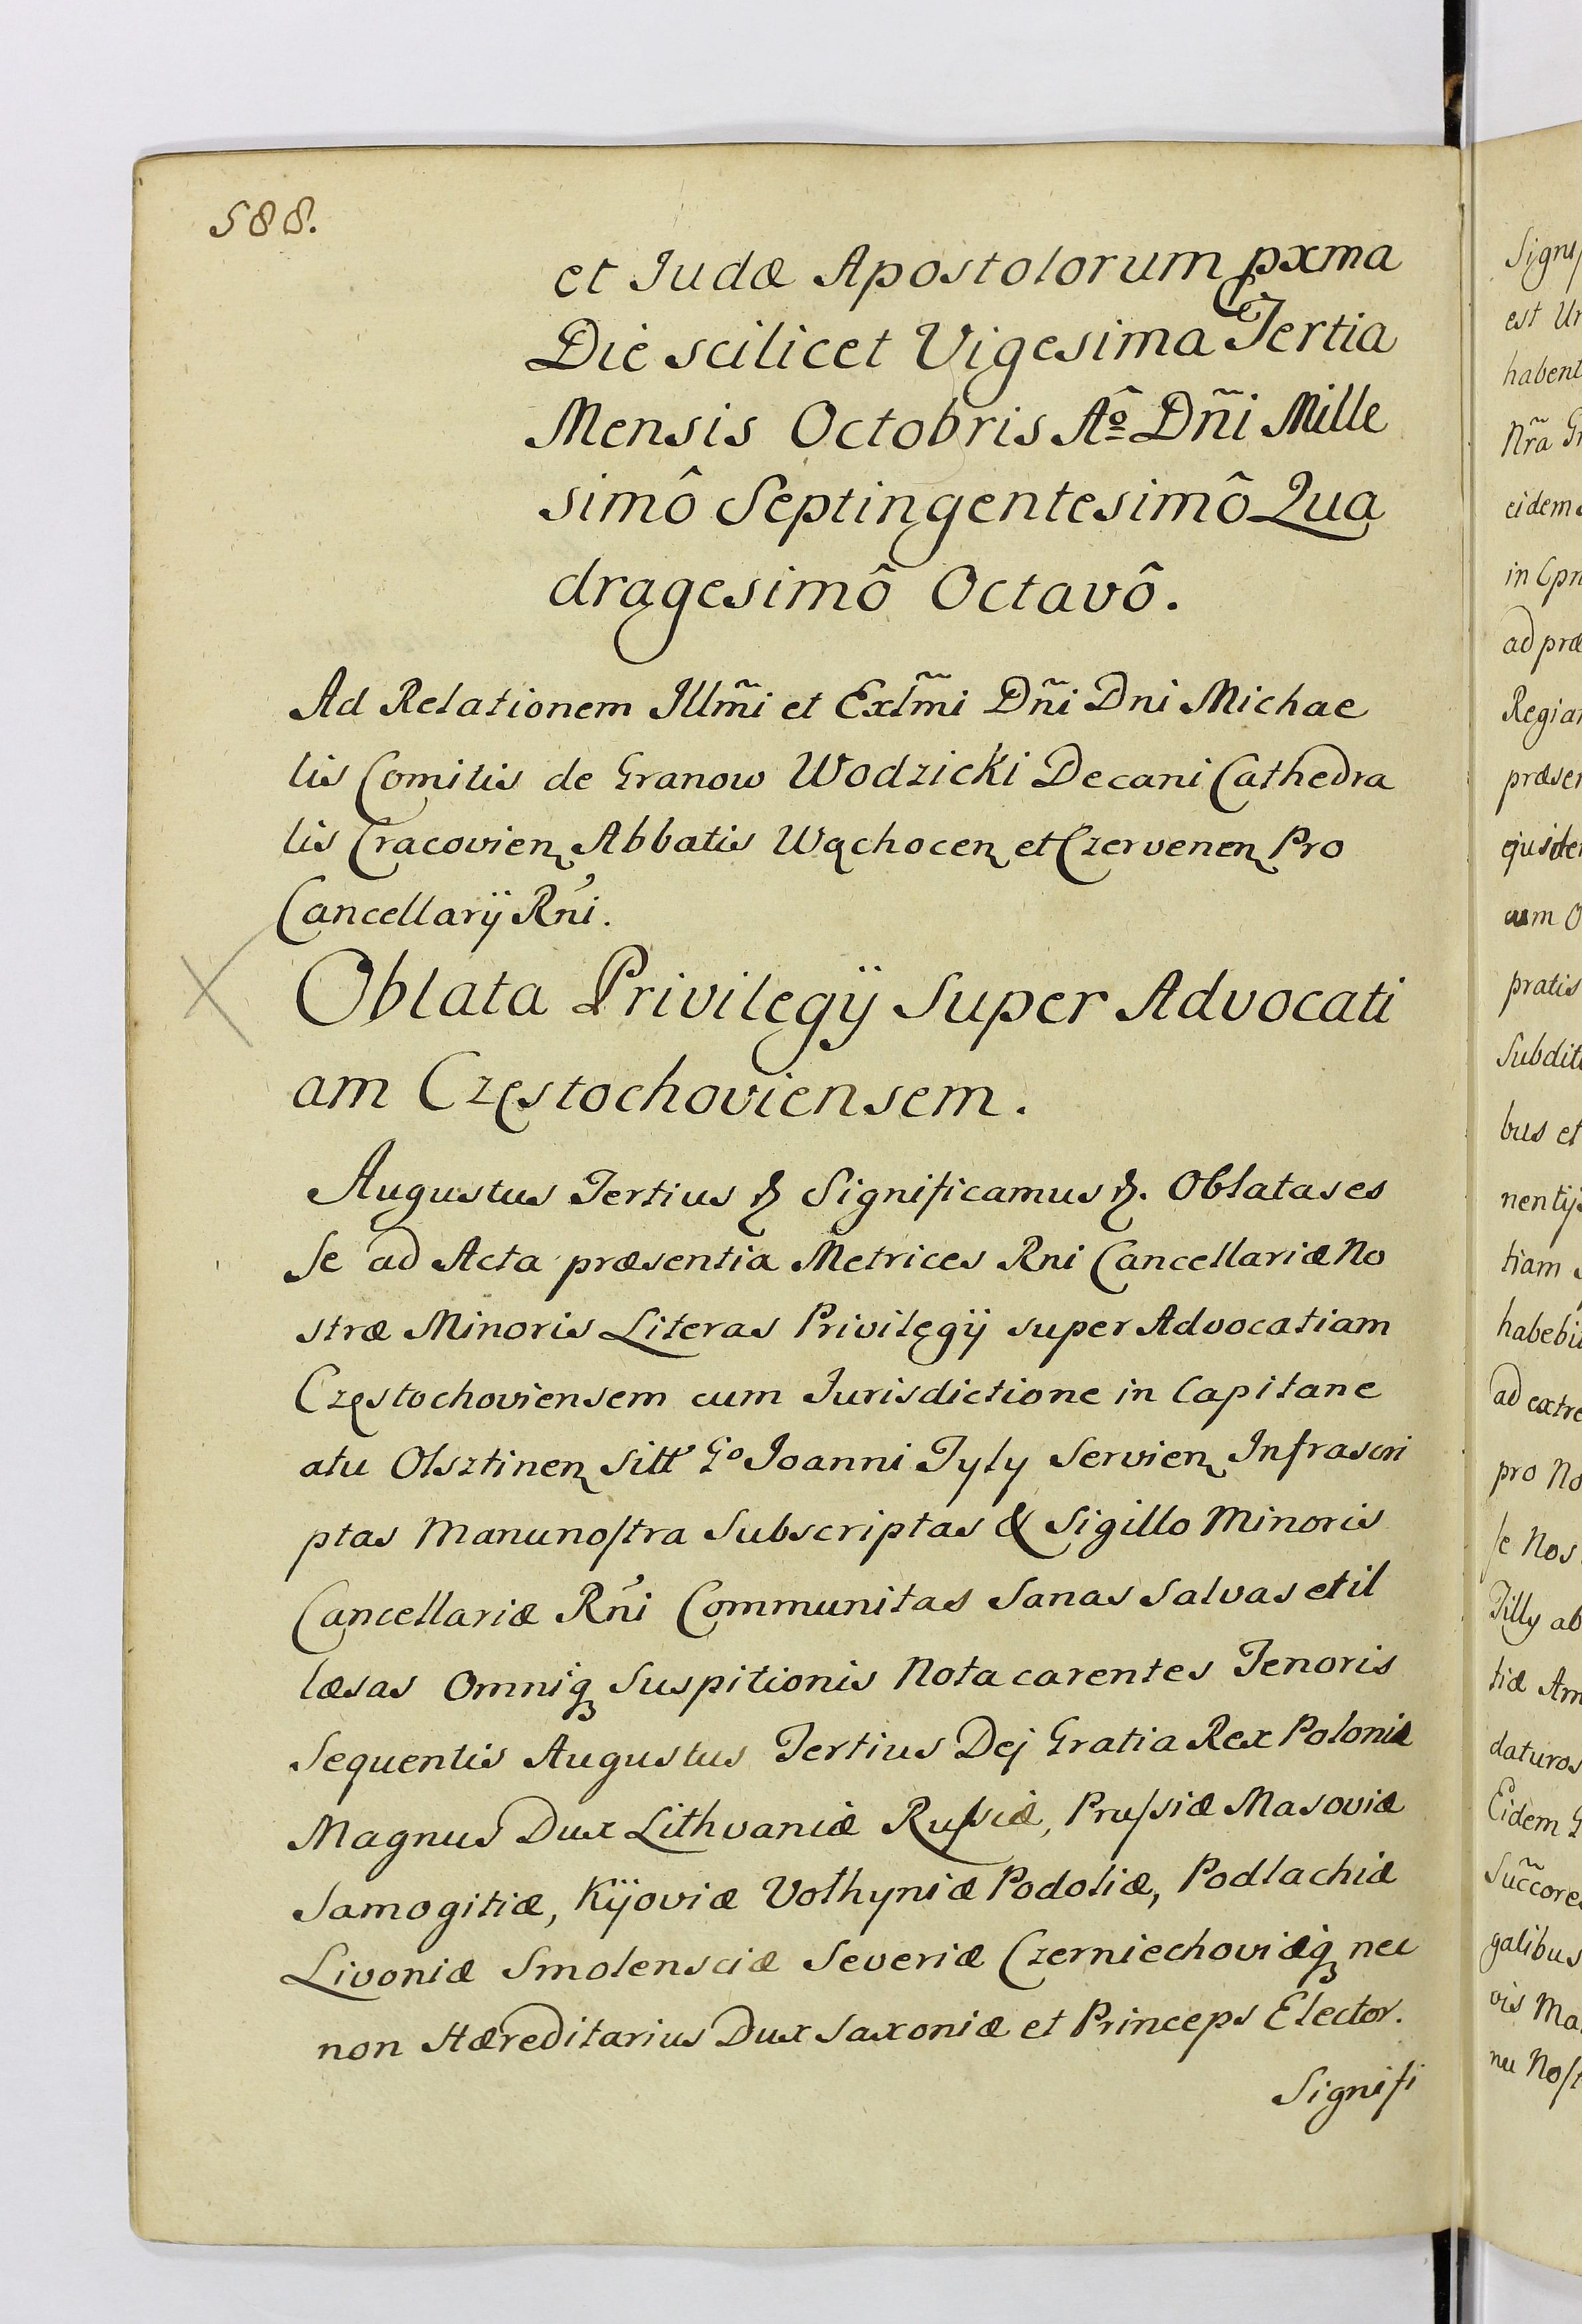 588.
et Judæ Apostolorum pxma
Die scilicet Vigesima Tertia
Mensis Octobris Aô Dñi Mille
simô Septingentesimô Qua
dragesimô Octavô.
Ad Relationem Illm̃i et Exlm̃i Dñi Dni Michae
lis Comitis de Granow Wodzicki Decani Cathedra
lis Cracovien Abbatis Wąchocen et Czervenen Pro
Cancellarÿ Rńi.
Oblata Privilegÿ Super Advocati
am Częstochoviensem.
Augustus Tertius & Significamus &. Oblatas es
se ad Acta præsentia Metrices Rni Cancellariæ No
stræ Minoris Literas Privilegÿ super Advocatiam
Częstochoviensem cum Jurisdictione in Capitane
atu Olsztinen sitt Go Joanni Tyly Servien Infrascri
ptas Manu nostra Subscriptas & Sigillo Minoris
Cancellariæ Rńi Communitas Sanas Salvas et il
læsas Omniq Suspitionis Nota carentes Tenoris
Sequentis Augustus Tertius Dej Gratia Rex Poloniæ
Magnus Dux Lithvaniæ Russiæ, Prussiæ Masoviæ
Samogitiæ, Kÿoviæ Volhyniæ Podoliæ, Podlachiæ
Livoniæ Smolensciæ Severiæ Czerniechoviæq nec
non Hæreditarius Dux Saxoniæ et Princeps Elector.
Signifi
Signif
est Ur
habent
Nr̃a Gr
eidem
in Cpn
ad præ
Regia
præser
ejusde
cum O
pratis
Subdit
bus et
nentijs
tiam
habebi
ad extre
pro No
se Nos
Tilly ab
tiæ Am
daturos
Eidem G
Succ̃ore
galibus
vis Ma
nu Nost